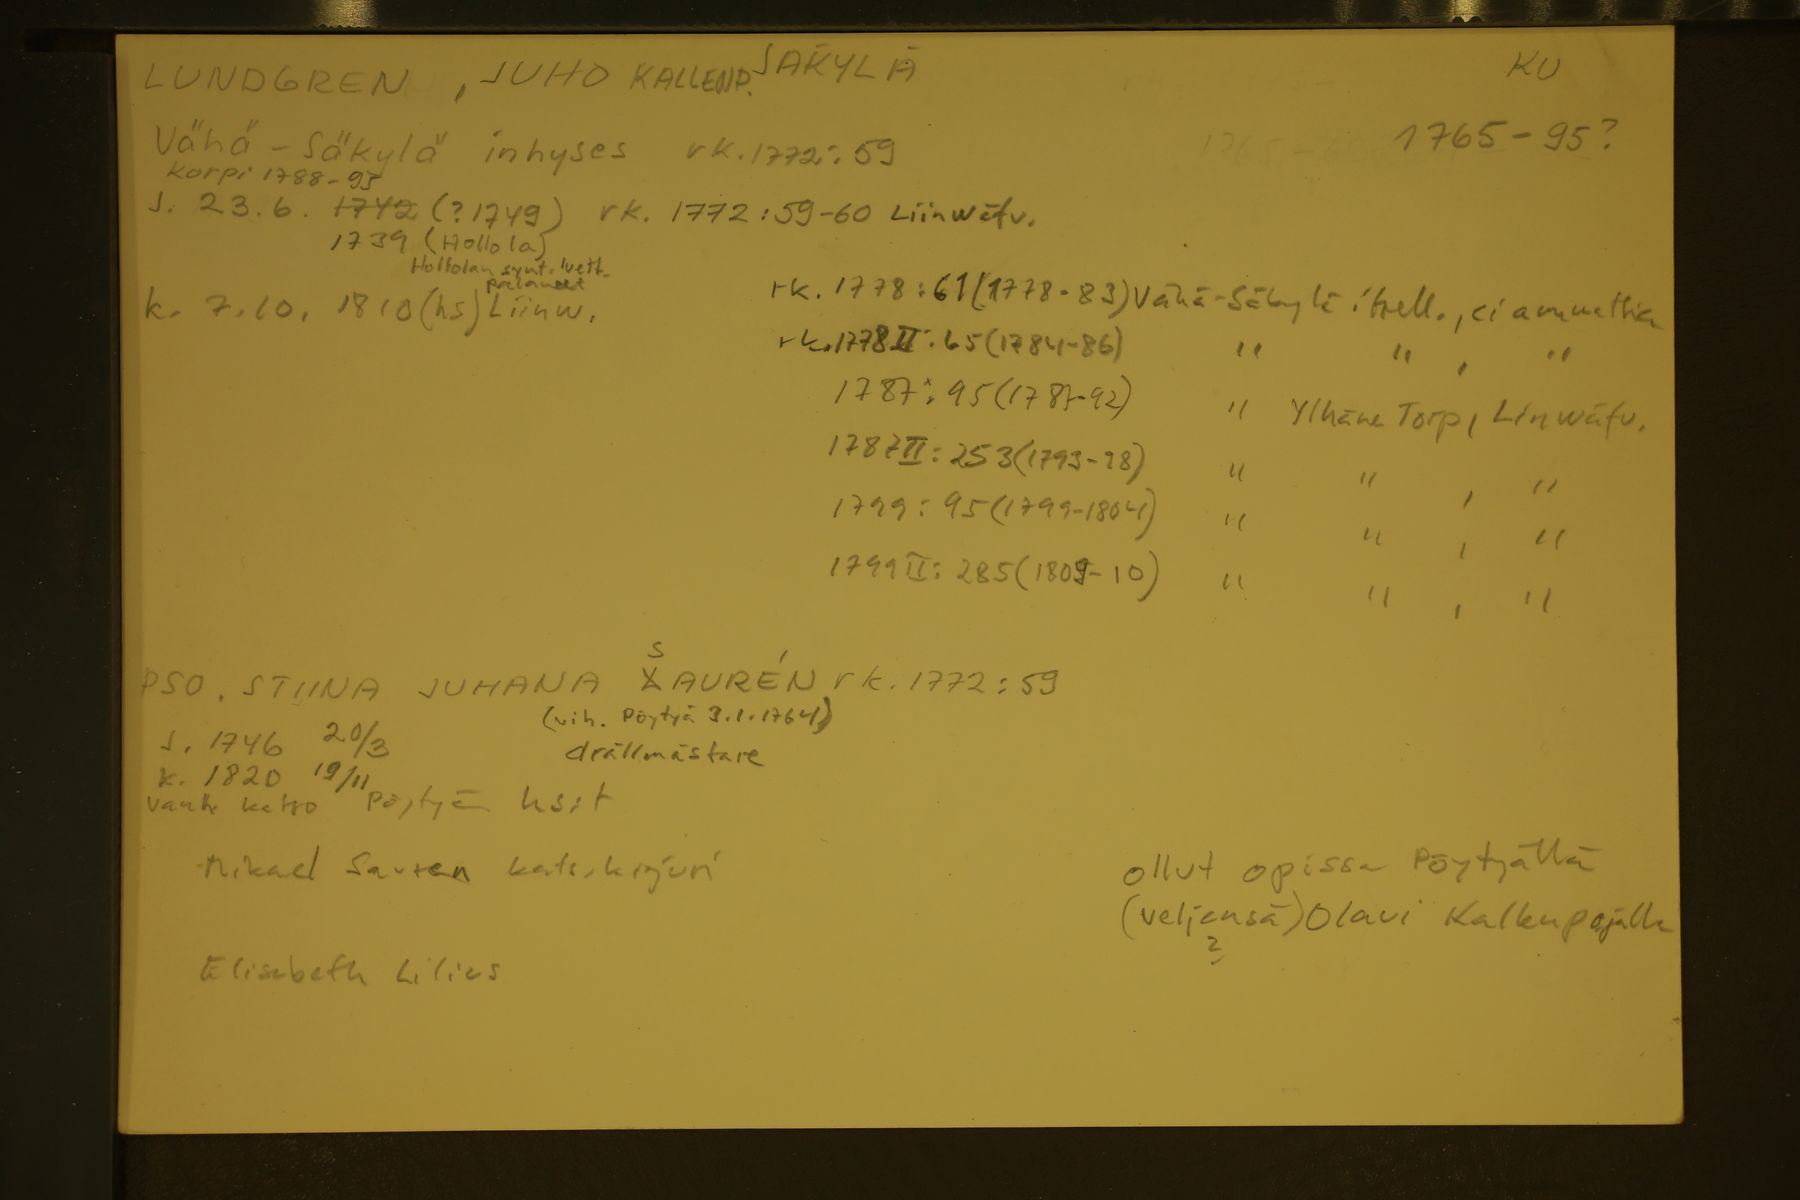 LUNDGREN, JUHO KALLENP. SÄKYLÄ KU
Vähä-Säkylä inhyses rk. 1772:59 1765-95?
Korpi 1788-95
s. 23.6. 1742 (?1749) rk. 1772:59-60 Liinwäfv.
1739 (Hollola)
Hollolan synt. luett.
palaneet
k. 7.10. 1810 (hs) Liinw.
rk. 1778:61 (1778-83) Vähä-Säkylä itsell., ei ammattia
rk. 1778 II:65 (1784-86) " " , "
1787:95 (1787-92) " Ylhäne Torp, Linwäfv.
1787 II:253 (1793-98) " " , "
1799:95 (1799-1804) " " , "
1799 II:285 (1809-10) " " , "
PSO. STIINA JUHANA SAURÉN rk. 1772:59
(vih. Pöytyä 3.1.1764)
s. 1746 20/3 drällmästare
k. 1820 19/11
katso Pöytyän hsit
Mikael Sauren kats.kirjuri
ollut opissa Pöytyällä
(veljensä) Olavi Kallenpojalla
?
Elisabeth Lilius